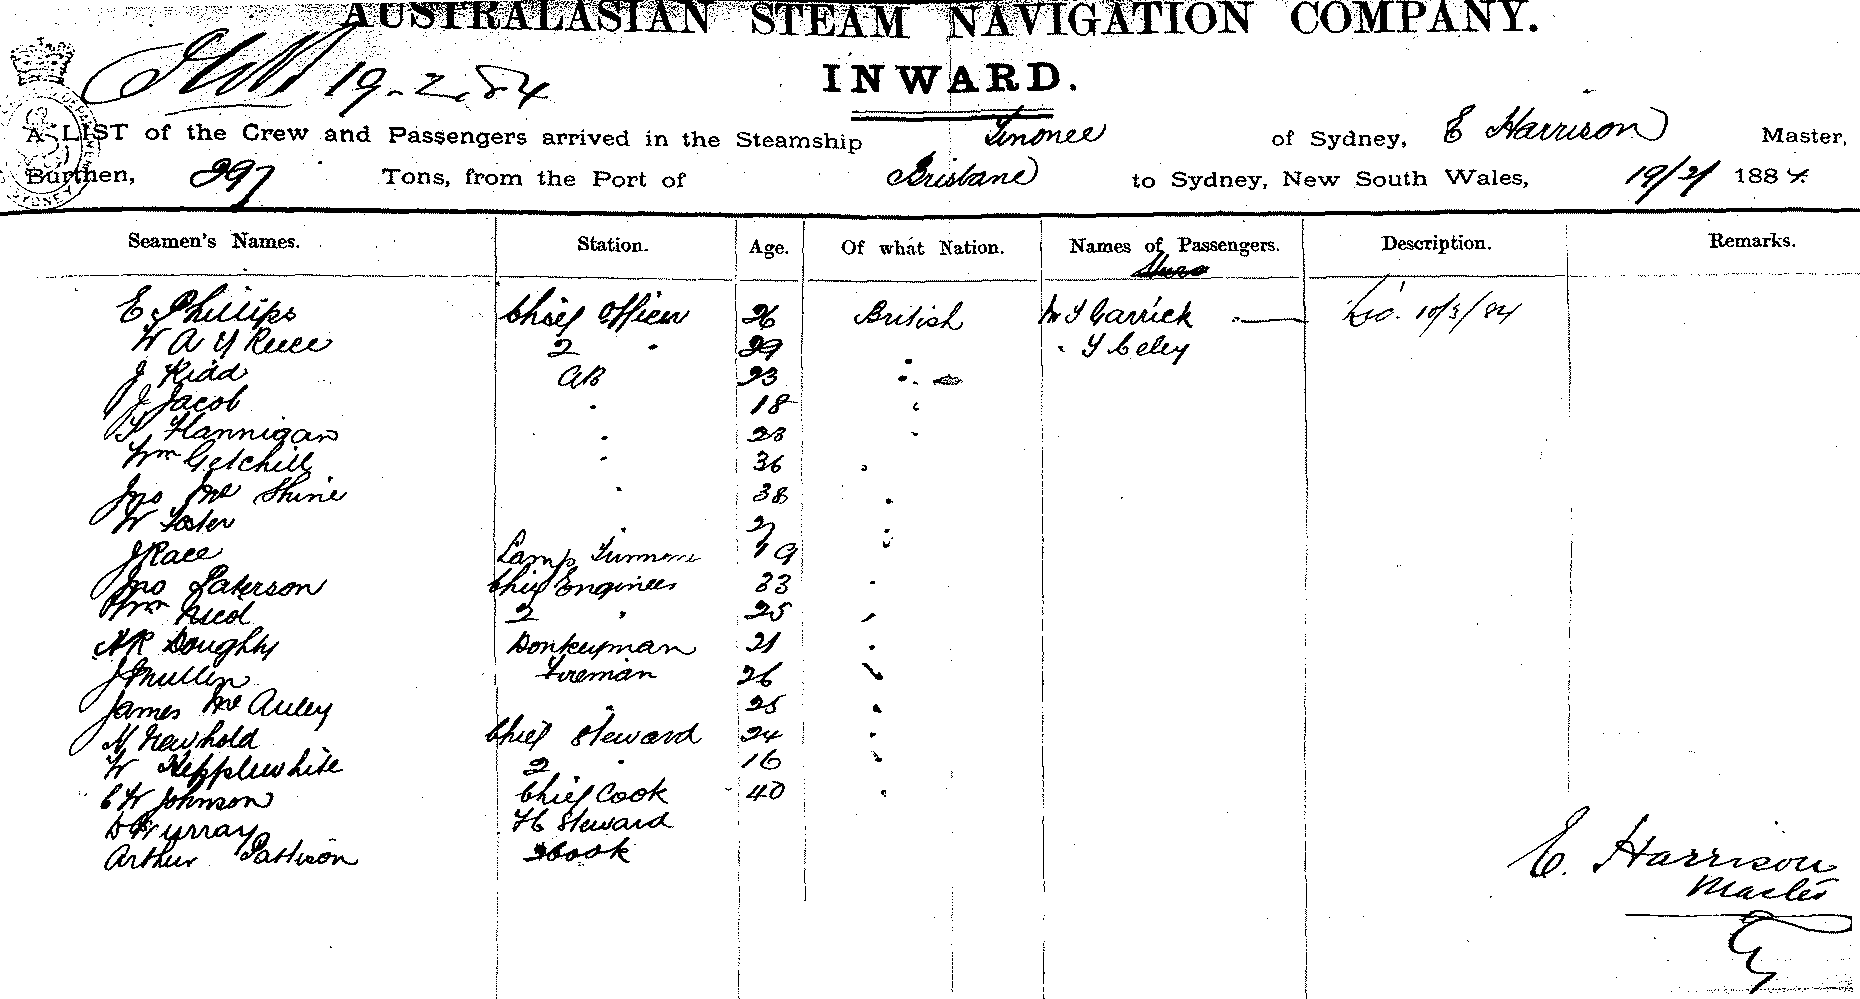 AUSTRALASIAN STEAM NAVIGATION COMPANY.
19.2.84
INWARD.
A LIST of the Crew and Passengers arrived in the Steamship Tinonee of Sydney, E Harrison Master,
Burthen, 397 Tons, from the Port of Brisbane to Sydney, New South Wales, 19/2/ 1884.
Seamen's Names. Station. Age. Of what Nation. Names of Passengers. Description. Remarks.
E Phillips Chief Officer 26 British Mr J Carrick 10/3/84
W A Y Reece 2 " 29 " " Y Celey
J Kidd AB 23 "
J Jacob " 18 "
T Flannigan " 23 "
Wm Getchill " 36 "
Jno Mc Shine " 38 "
W Foster " 27 "
J Race Lamp Trimmer 19 "
Jno Paterson Chief Engineer 33 "
Wm Reed 2 " 25 "
Doughty Donkeyman 21 "
J Mullen Fireman 26 "
James McAuley " 25 "
Newbold Chief Steward 24 "
W Kepplewhite 2 " 16 "
C W Johnson Chief Cook 40 "
Murray Steward
Arthur Pattison 2 Cook
E. Harrison
Master